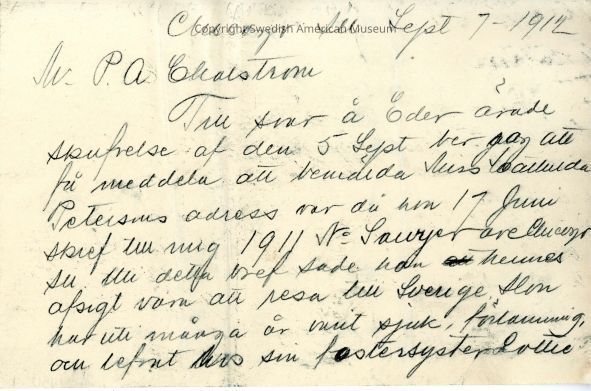 Chicago Ill Sept 7 - 1912
Copyright Swedish American Museum
Mr P. A. Chalstrom
Till svar å Eder ärade
skrifvelse af den 5 Sept ber jag att
få meddela att bemälda Miss Mathilda
Petersons adress var då hon 17 Juni
skref till mig 1911 No Sawyer ave Chicago
Ill. Uti detta bref sade hon hennes
afsigt vara att resa till Sverige. Hon
har uti många år varit sjuk, förlamning,
och befunt hos sin fostersyster Lottie